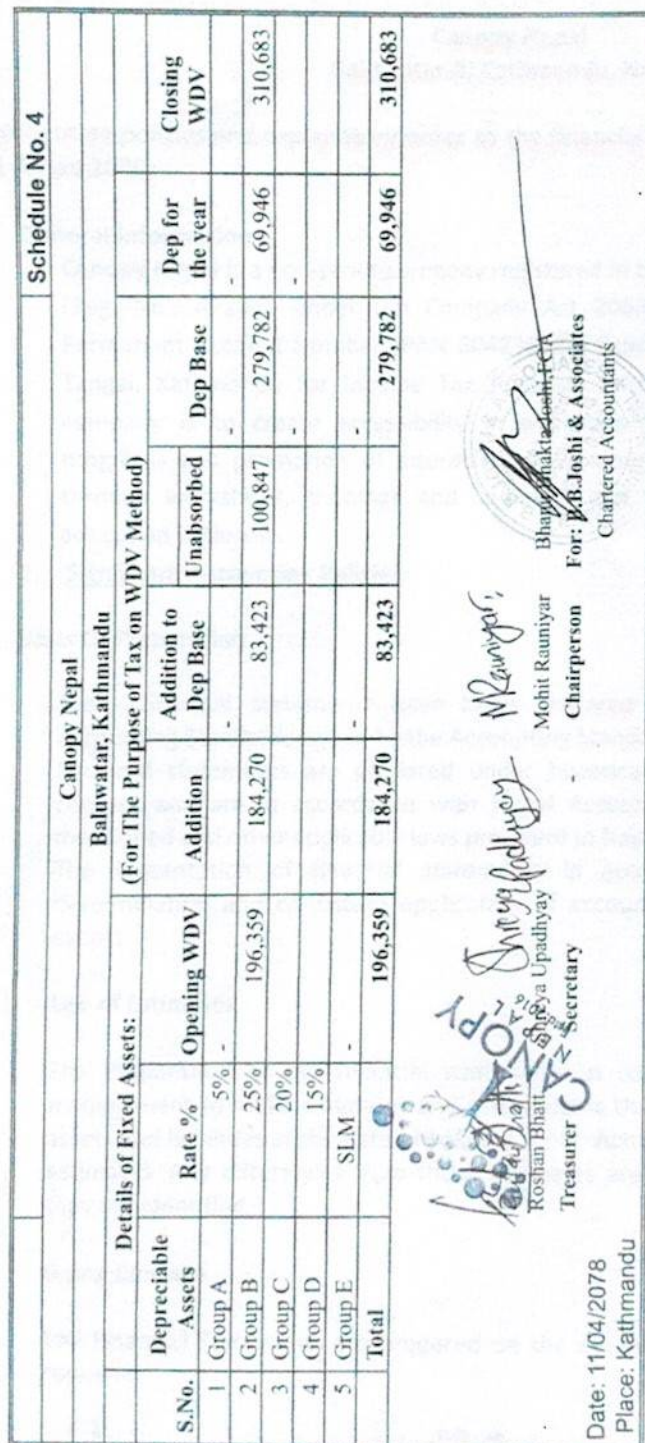 Schedule No. 4
Canopy Nepal
Baluwatar, Kathmandu
Details of Fixed Assets: (For The Purpose of Tax on WDV Method)
S.No. Depreciable Assets Rate % Opening WDV Addition Addition to Dep Base Unabsorbed Dep Base Dep for the year Closing WDV
1 Group A 5% - - - -
2 Group B 25% 196,359 184,270 83,423 100,847 279,782 69,946 310,683
3 Group C 20% - -
4 Group D 15%
5 Group E SLM - - - -
Total 196,359 184,270 83,423 279,782 69,946 310,683
Roshan Bhatt
Treasurer
CANOPY
Shreya Upadhyay
Secretary
MRauniyar
Mohit Rauniyar
Chairperson
Joshi FCA
For: B.Joshi & Associates
Chartered Accountants
Date: 11/04/2078
Place: Kathmandu